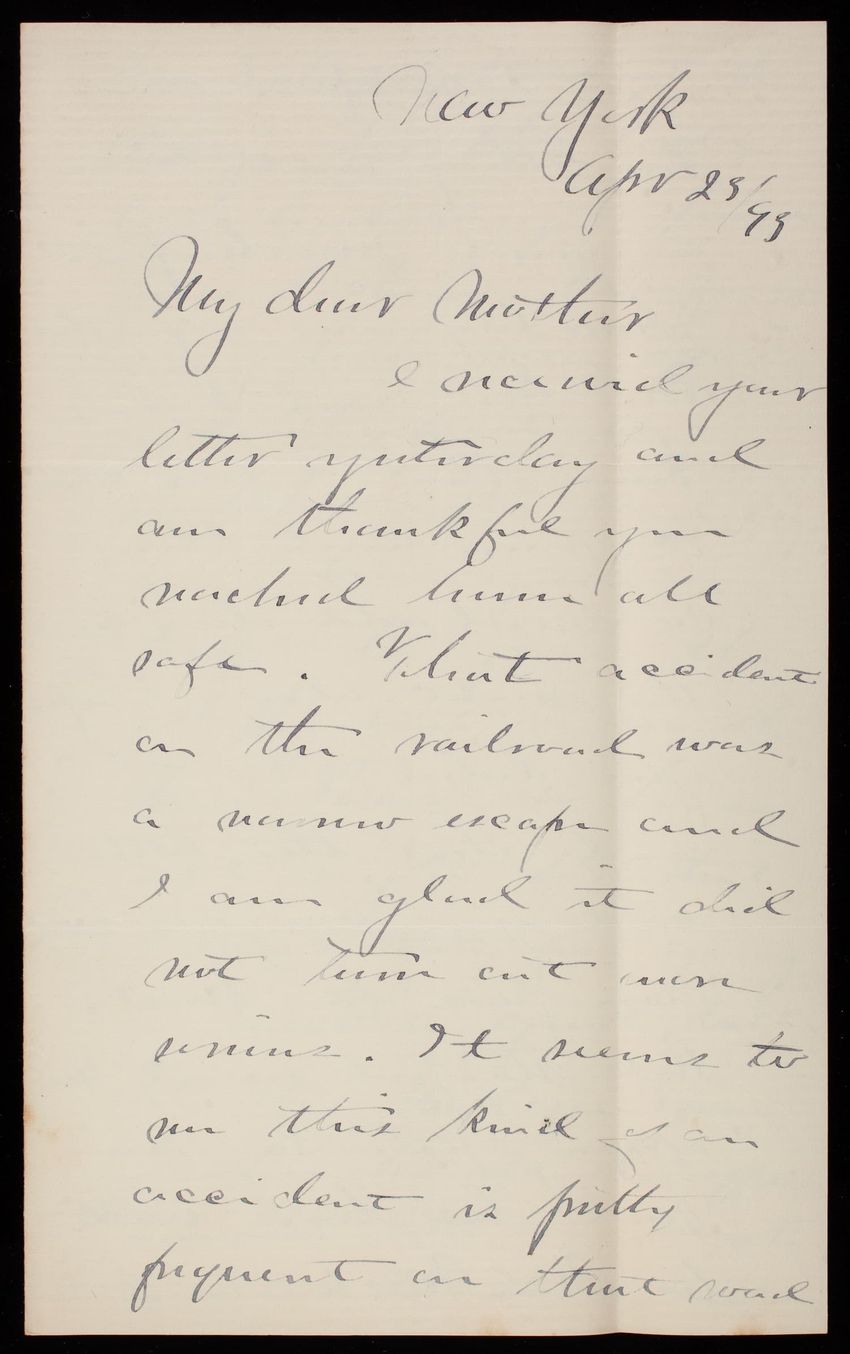 New York
Apr 23/93
My dear Mother
I received your
letter yesterday and
am thankful you
reached home all
safe. That accident
on the railroad was
a narrow escape and
I am glad it did
not turn out more
serious. It seems to
me this kind of an
accident is pretty
frequent on that road